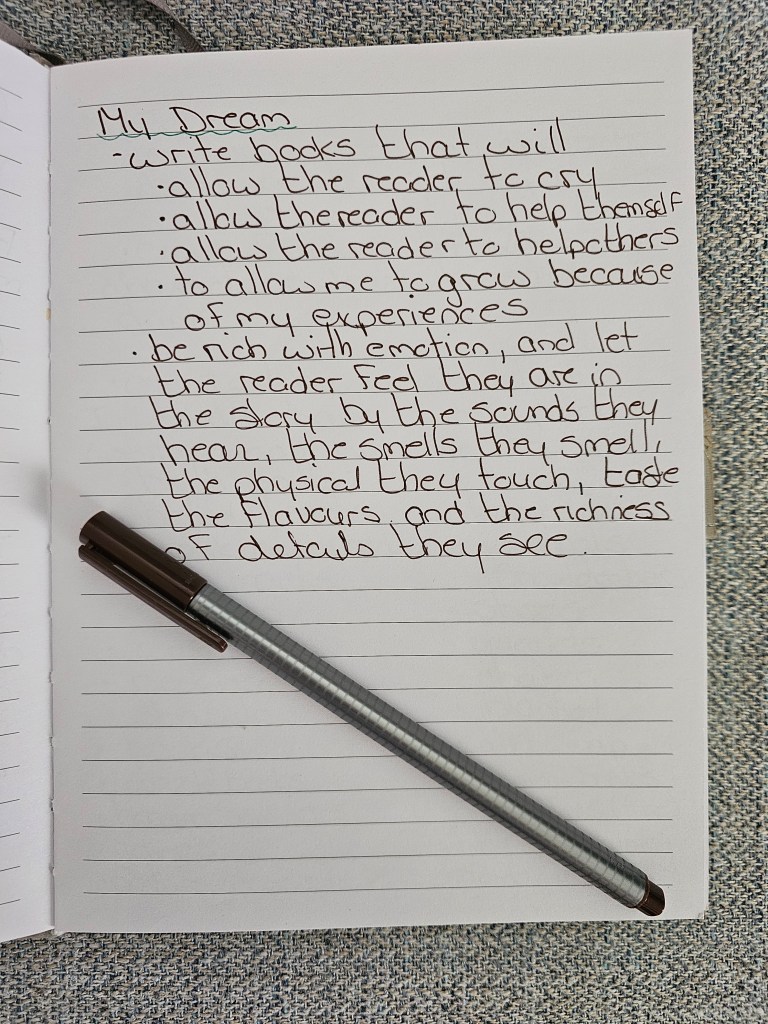 My Dream
- write books that will
· allow the reader to cry
· allow the reader to help themself
· allow the reader to help others
· to allow me to grow because
of my experiences
· be rich with emotion, and let
the reader feel they are in
the story by the sounds they
hear, the smells they smell,
the physical they touch, taste
the flavours, and the richness
of details they see.